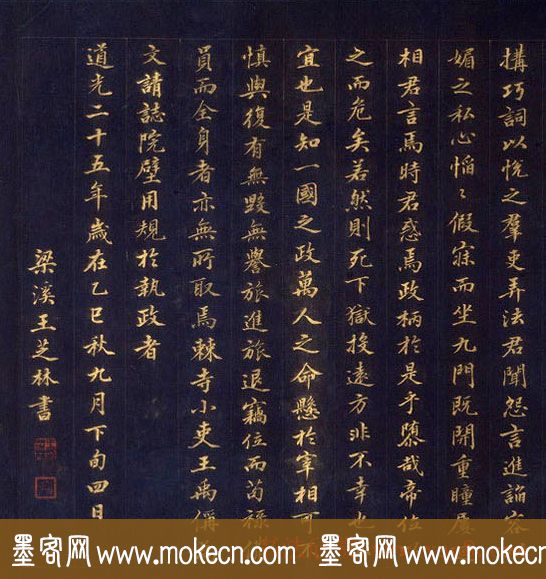 搆巧詞以悅之羣吏弄法君聞怨言進諂容以
媚之私心慆〻假寐而坐九門既開重瞳屢
相君言焉時君惑焉政柄於是乎隳哉帝位
之而危矣若然則死下獄投遠方非不幸也
宜也是知一國之政萬人之命懸於宰相可不
慎與復有無毀無譽旅進旅退竊位而苟祿
員而全身者亦無所取焉棘寺小吏王禹偁
文請誌院壁用規於執政者
道光二十五年歲在乙巳秋九月下旬四日
梁溪王芝林書
墨客网 www.mokecn.com 墨客网